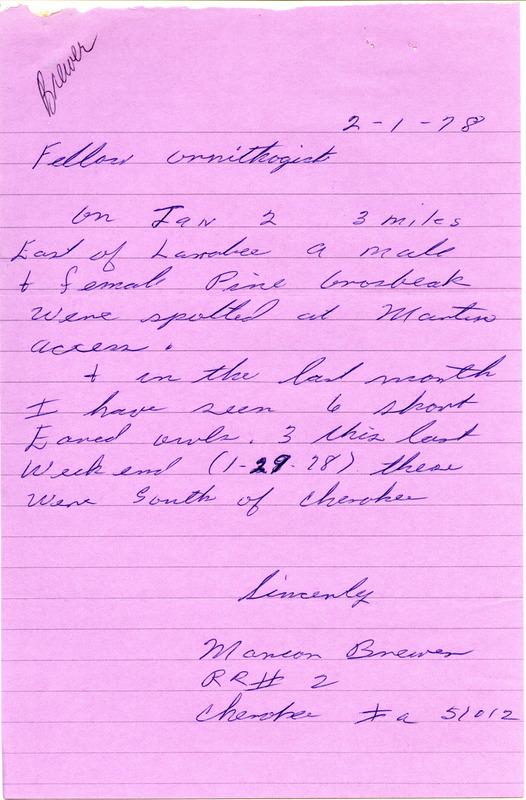 Brewer
2-1-78
Fellow Ornithogist
On Jan 2 3 miles
East of Larrabee a male
+ female Pine Grosbeak
Were spotted at Martin
access.
+ in the last month
I have seen 6 short
Eared owls. 3 this last
Week end (1-29-78) these
Were South of Cherokee
Sincerly
Marion Brewer
RR# 2
Cherokee Ia 51012